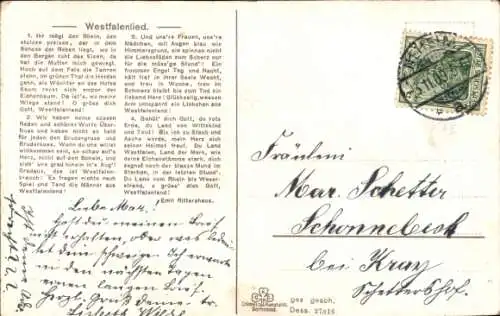 Westfalenlied.
1. Ihr mögt den Rhein, den
stolzen preisen, der in dem
Schoss der Reben liegt, wo in
den Bergen ruht das Eisen, da
hat die Mutter mich gewiegt.
Hoch auf dem Fels die Tannen
steh'n, im grünen Thal die Herden
geh'n, als Wächter an des Hofes
Saum reckt sich empor der
Eichenbaum. Da ist's, wo meine
Wiege stand! O grüss dich
Gott, Westfalenland!
2. Wir haben keine süssen
Reden und schöner Worte Über-
fluss und haben nicht so bald
für jeden den Brudergruss und
Bruderkuss. Wenn du uns willst
willkommen sein, so schau auf's
Herz, nicht auf den Schein, und
sieh' uns grad hinein in's Aug'!
Gradaus, das ist Westfalen-
brauch! Es fragen nichts nach
Spiel und Tand die Männer aus
Westfalenland!
3. Und uns're Frauen, uns're
Mädchen, mit Augen blau wie
Himmelsgrund, sie spinnen nicht
die Liebesfäden zum Scherz nur
für die müss'ge Stund'! Ein
frommer Engel Tag und Nacht,
hält tief in ihrer Seele Wacht,
und treu in Wonne, treu im
Schmerz bleibt bis zum Tod ein
liebend Herz! Glückselig, wessen
Arm umspannt ein Liebchen aus
Westfalenland!
4. Behüt' dich Gott, du rote
Erde, du Land von Wittekind
und Teut! Bis ich zu Staub und
Asche werde, mein Herz sich
seiner Heimat freut. Du Land
Westfalen, Land der Mark, wie
deine Eichenstämme stark, dich
segnet noch der blasse Mund im
Sterben, in der letzten Stund'!
Du Land vom Rhein bis Weser-
strand, o grüss' dich Gott,
Westfalenland!
Emil Rittershaus.
Liebe Mar.!
Hast du meinen Brief
nicht erhalten, oder was
ist dein schweigen. Ich erwarte
in den nächsten tagen
einen langen Brief
Herzl. Gruß
Lisbeth
Fräulein
Mar. Schetter
Schonnebeck
bei Kray
Schettershof.
ges gesch.
Dess. 27816